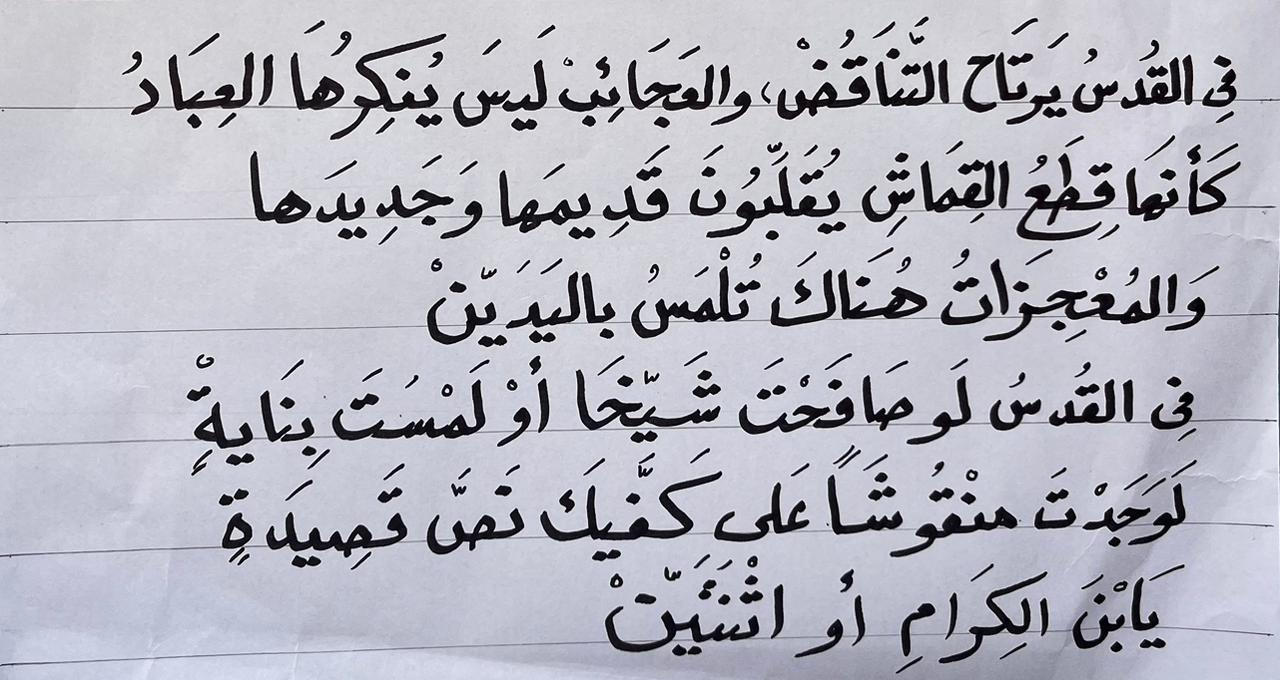 فِي القُدسُ يَرتَاح التَّنَاقُضْ، والعَجَائِبْ لَيسَ يُنكِرُهَا العِبَادُ
كَأَنهَا قِطَعُ القِمَاشِ يُقَلِّبُونَ قَدِيمَها وَجَدِيدَها
وَالمُعْجِزَاتُ هُنَاكَ تُلْمَسُ باليَدَيّنْ
فِي القُدسُ لَو صَافَحْتَ شَيّخَا أوْ لَمْسُتَ بِنَايةٍْ
لَوَجَدْتَ منْقُوشَاً عَلى كَفَّيكَ نَصَّ قَصِيدَةٍ
يَابْنَ الكِرَامِ أو اثْنَتَيّنْ